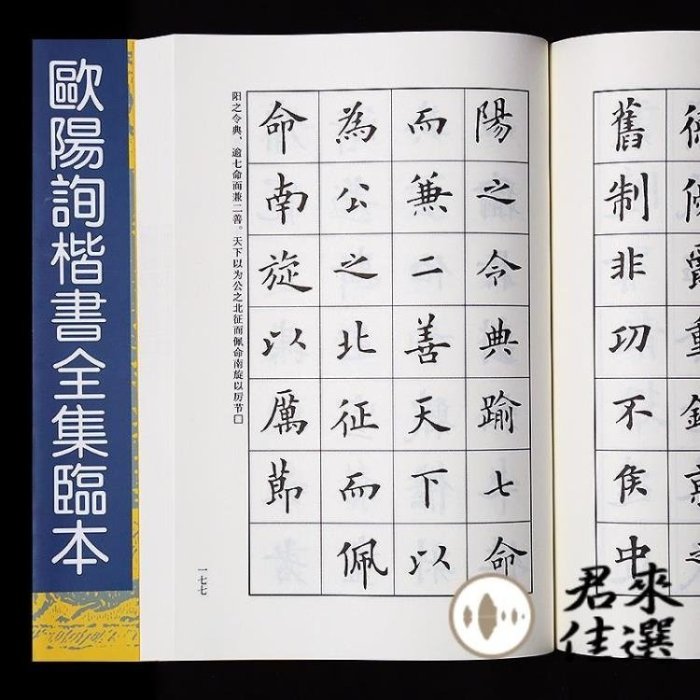 歐陽詢楷書全集臨本
舊制非功不侯中
陽之令典踰七命
而兼二善天下以
為公之北征而佩
命南旋以厲節
阳之令典，逾七命而兼二善。天下以为公之北征而佩命南旋以厉节
一七七
君來
佳選